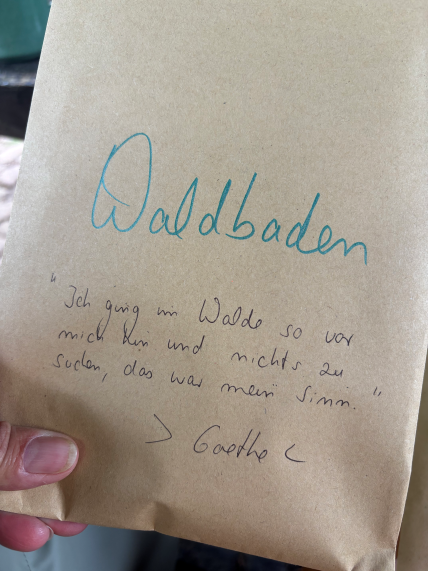 Waldbaden
"Ich ging im Walde so vor
mich hin und nichts zu
suchen, das war mein Sinn."
> Goethe <